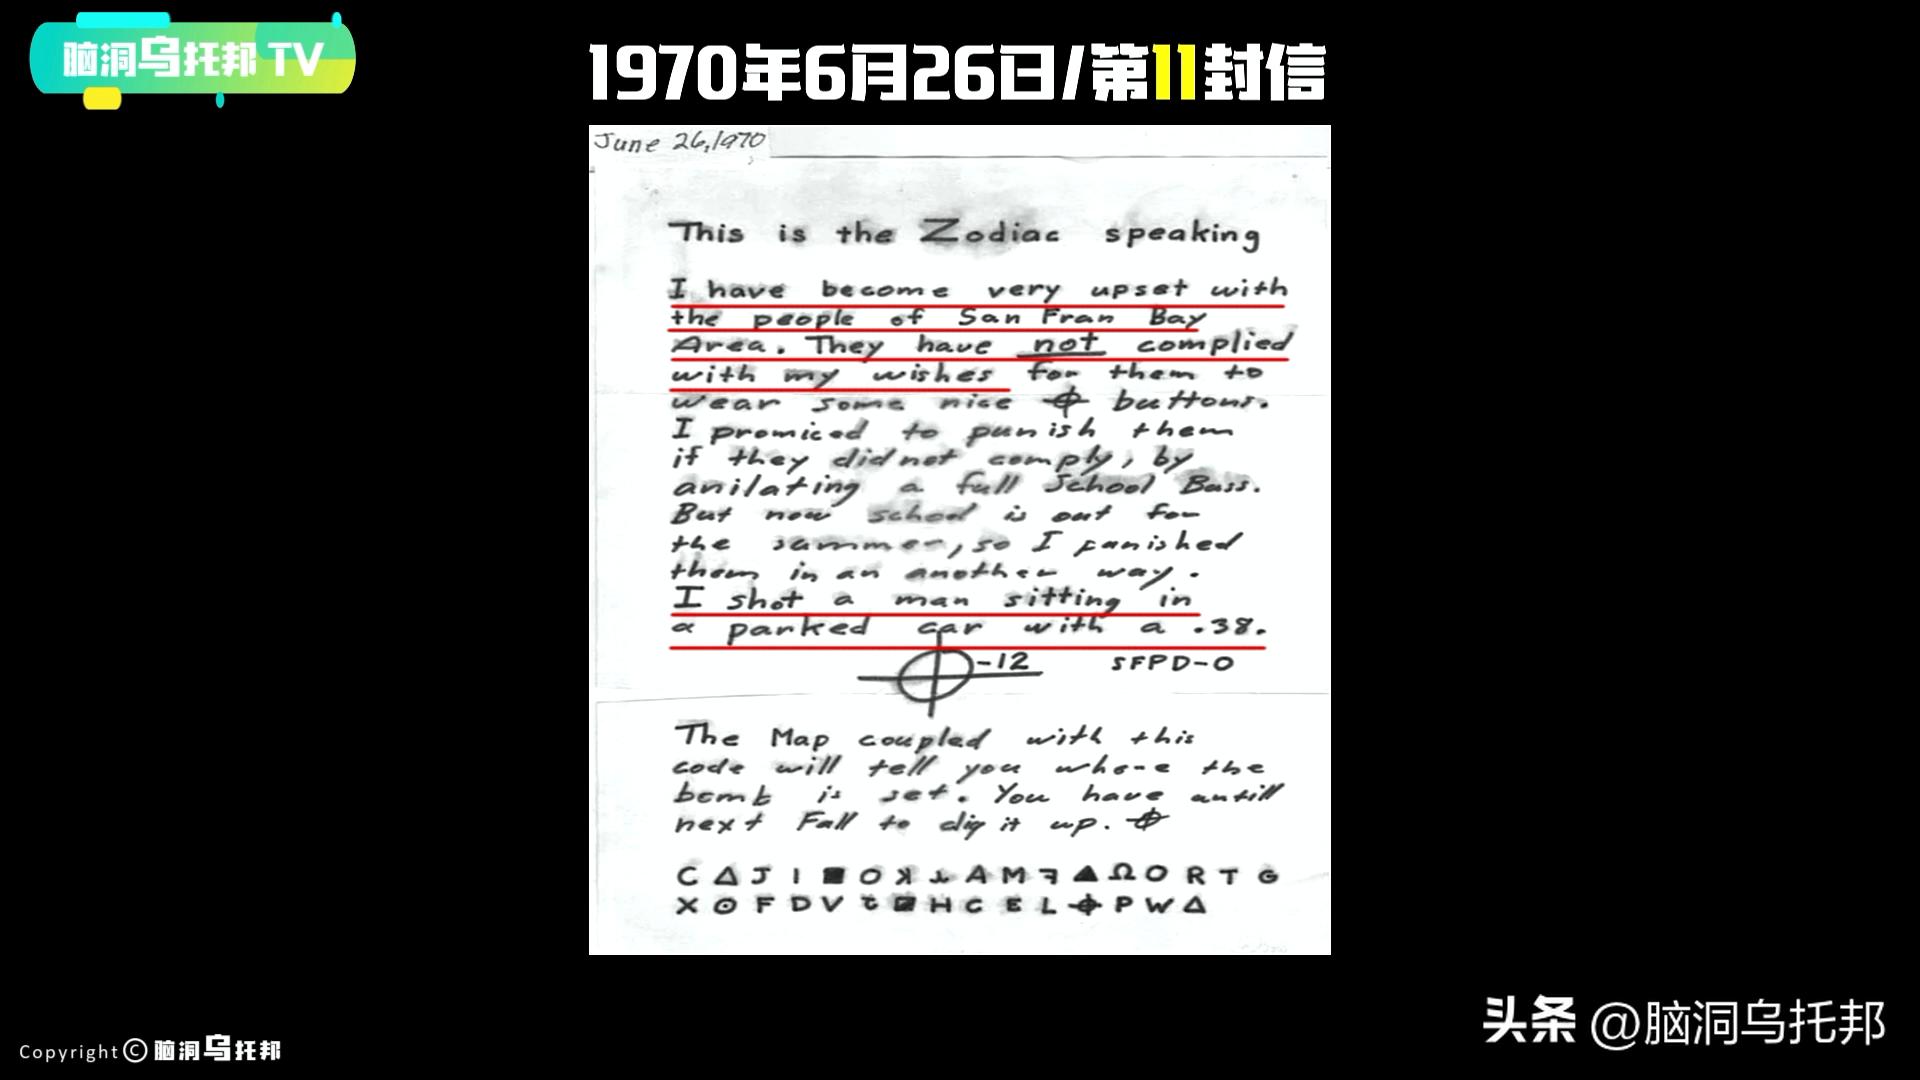 脑洞乌托邦 TV
1970年6月26日/第11封信
June 26, 1970
This is the Zodiac speaking
I have become very upset with
the people of San Fran Bay
Area. They have not complied
with my wishes for them to
wear some nice ⌖ buttons.
I promiced to punish them
if they did not comply, by
anilating a full School Buss.
But now school is out for
the summer, so I punished
them in an another way.
I shot a man sitting in
a parked car with a .38.
⌖-12 SFPD-0
The Map coupled with this
code will tell you where the
bomb is set. You have untill
next Fall to dig it up. ⌖
C Δ J I ■ O ꓘ ⅄ A M ꟻ ▲ Ω O R T G
X ⊙ F D V ⊞ H C E L ⌖ P W Δ
Copyright © 脑洞乌托邦
头条 @脑洞乌托邦